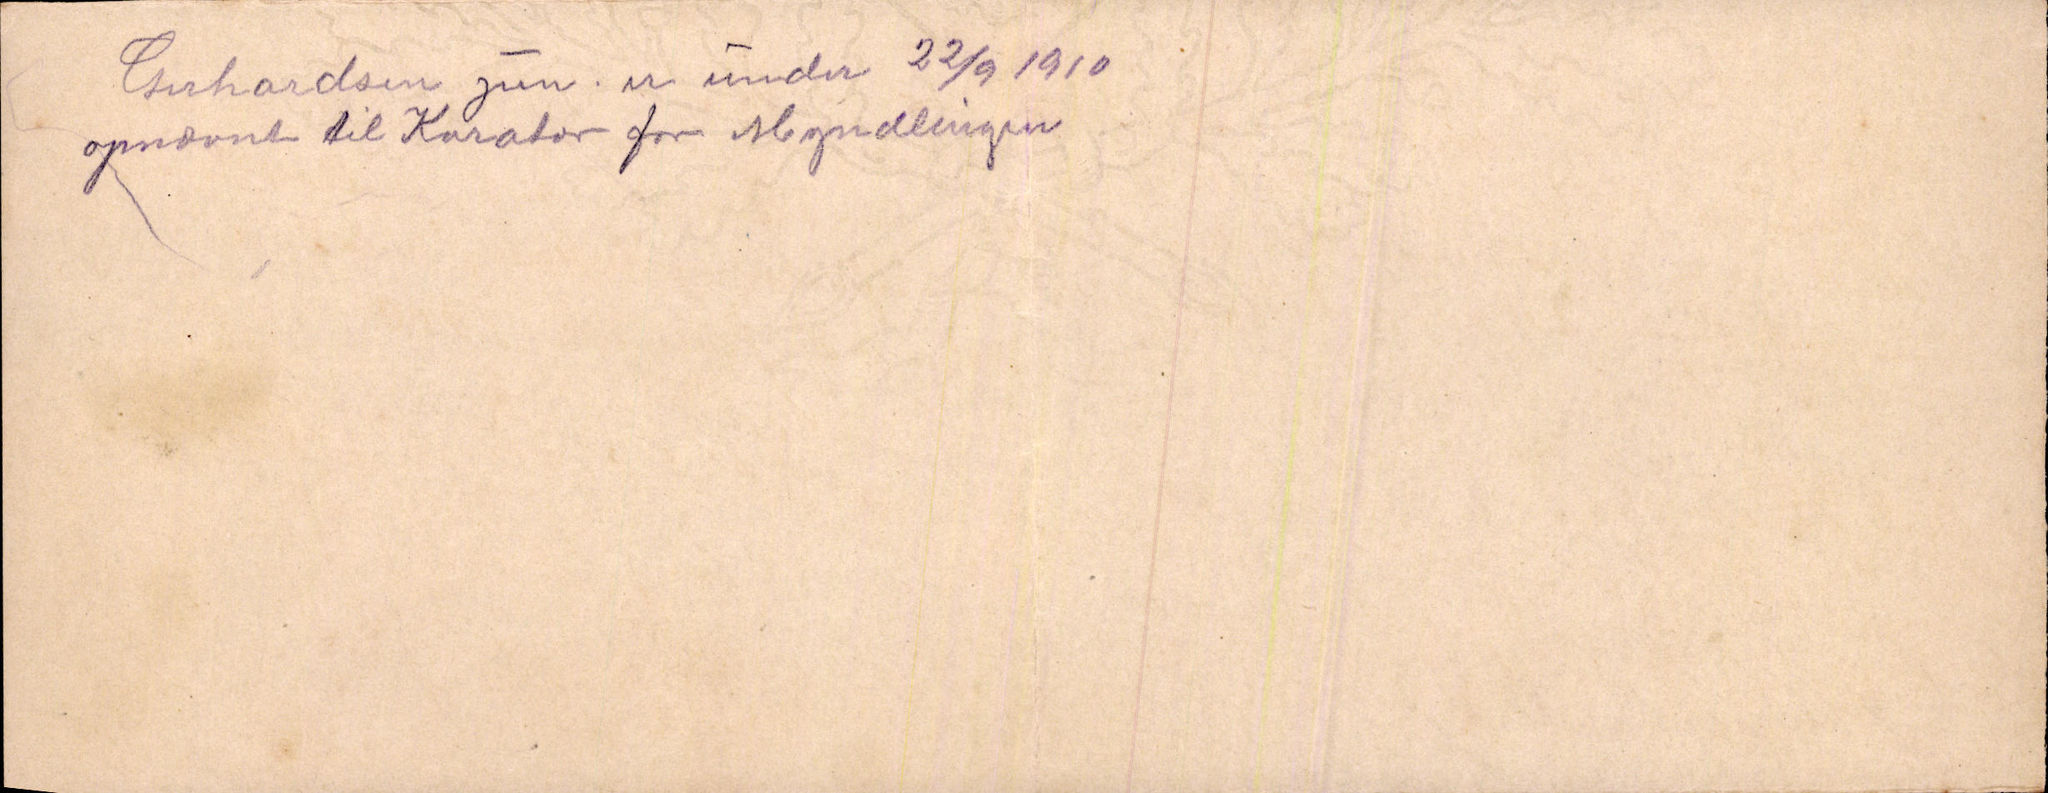 Gerhardsen jun. er under 22/9 1910
opnævnt til Kurator for Myndlingen